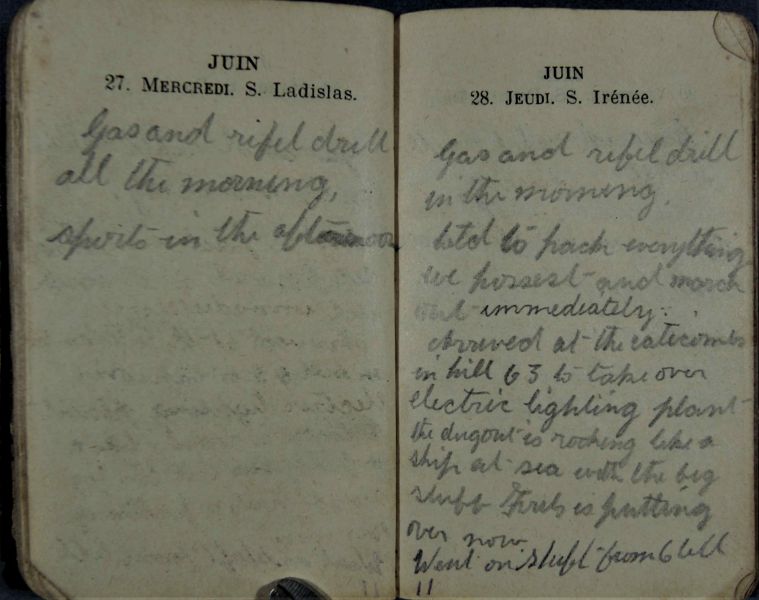 JUIN
27. MERCREDI. S. Ladislas.
Gas and rifel drill
all the morning,
sports in the afternoon
JUIN
28. JEUDI. S. Irénée.
Gas and rifel drill
in the morning.
told to pack everything
we possest and march
out immediately.
Arrived at the catecombs
in hill 63 to take over
electric lighting plant
the dugout is rocking like a
ship at sea with the big
stuff Fritz is putting
over now
Went on shift from 6 till
11